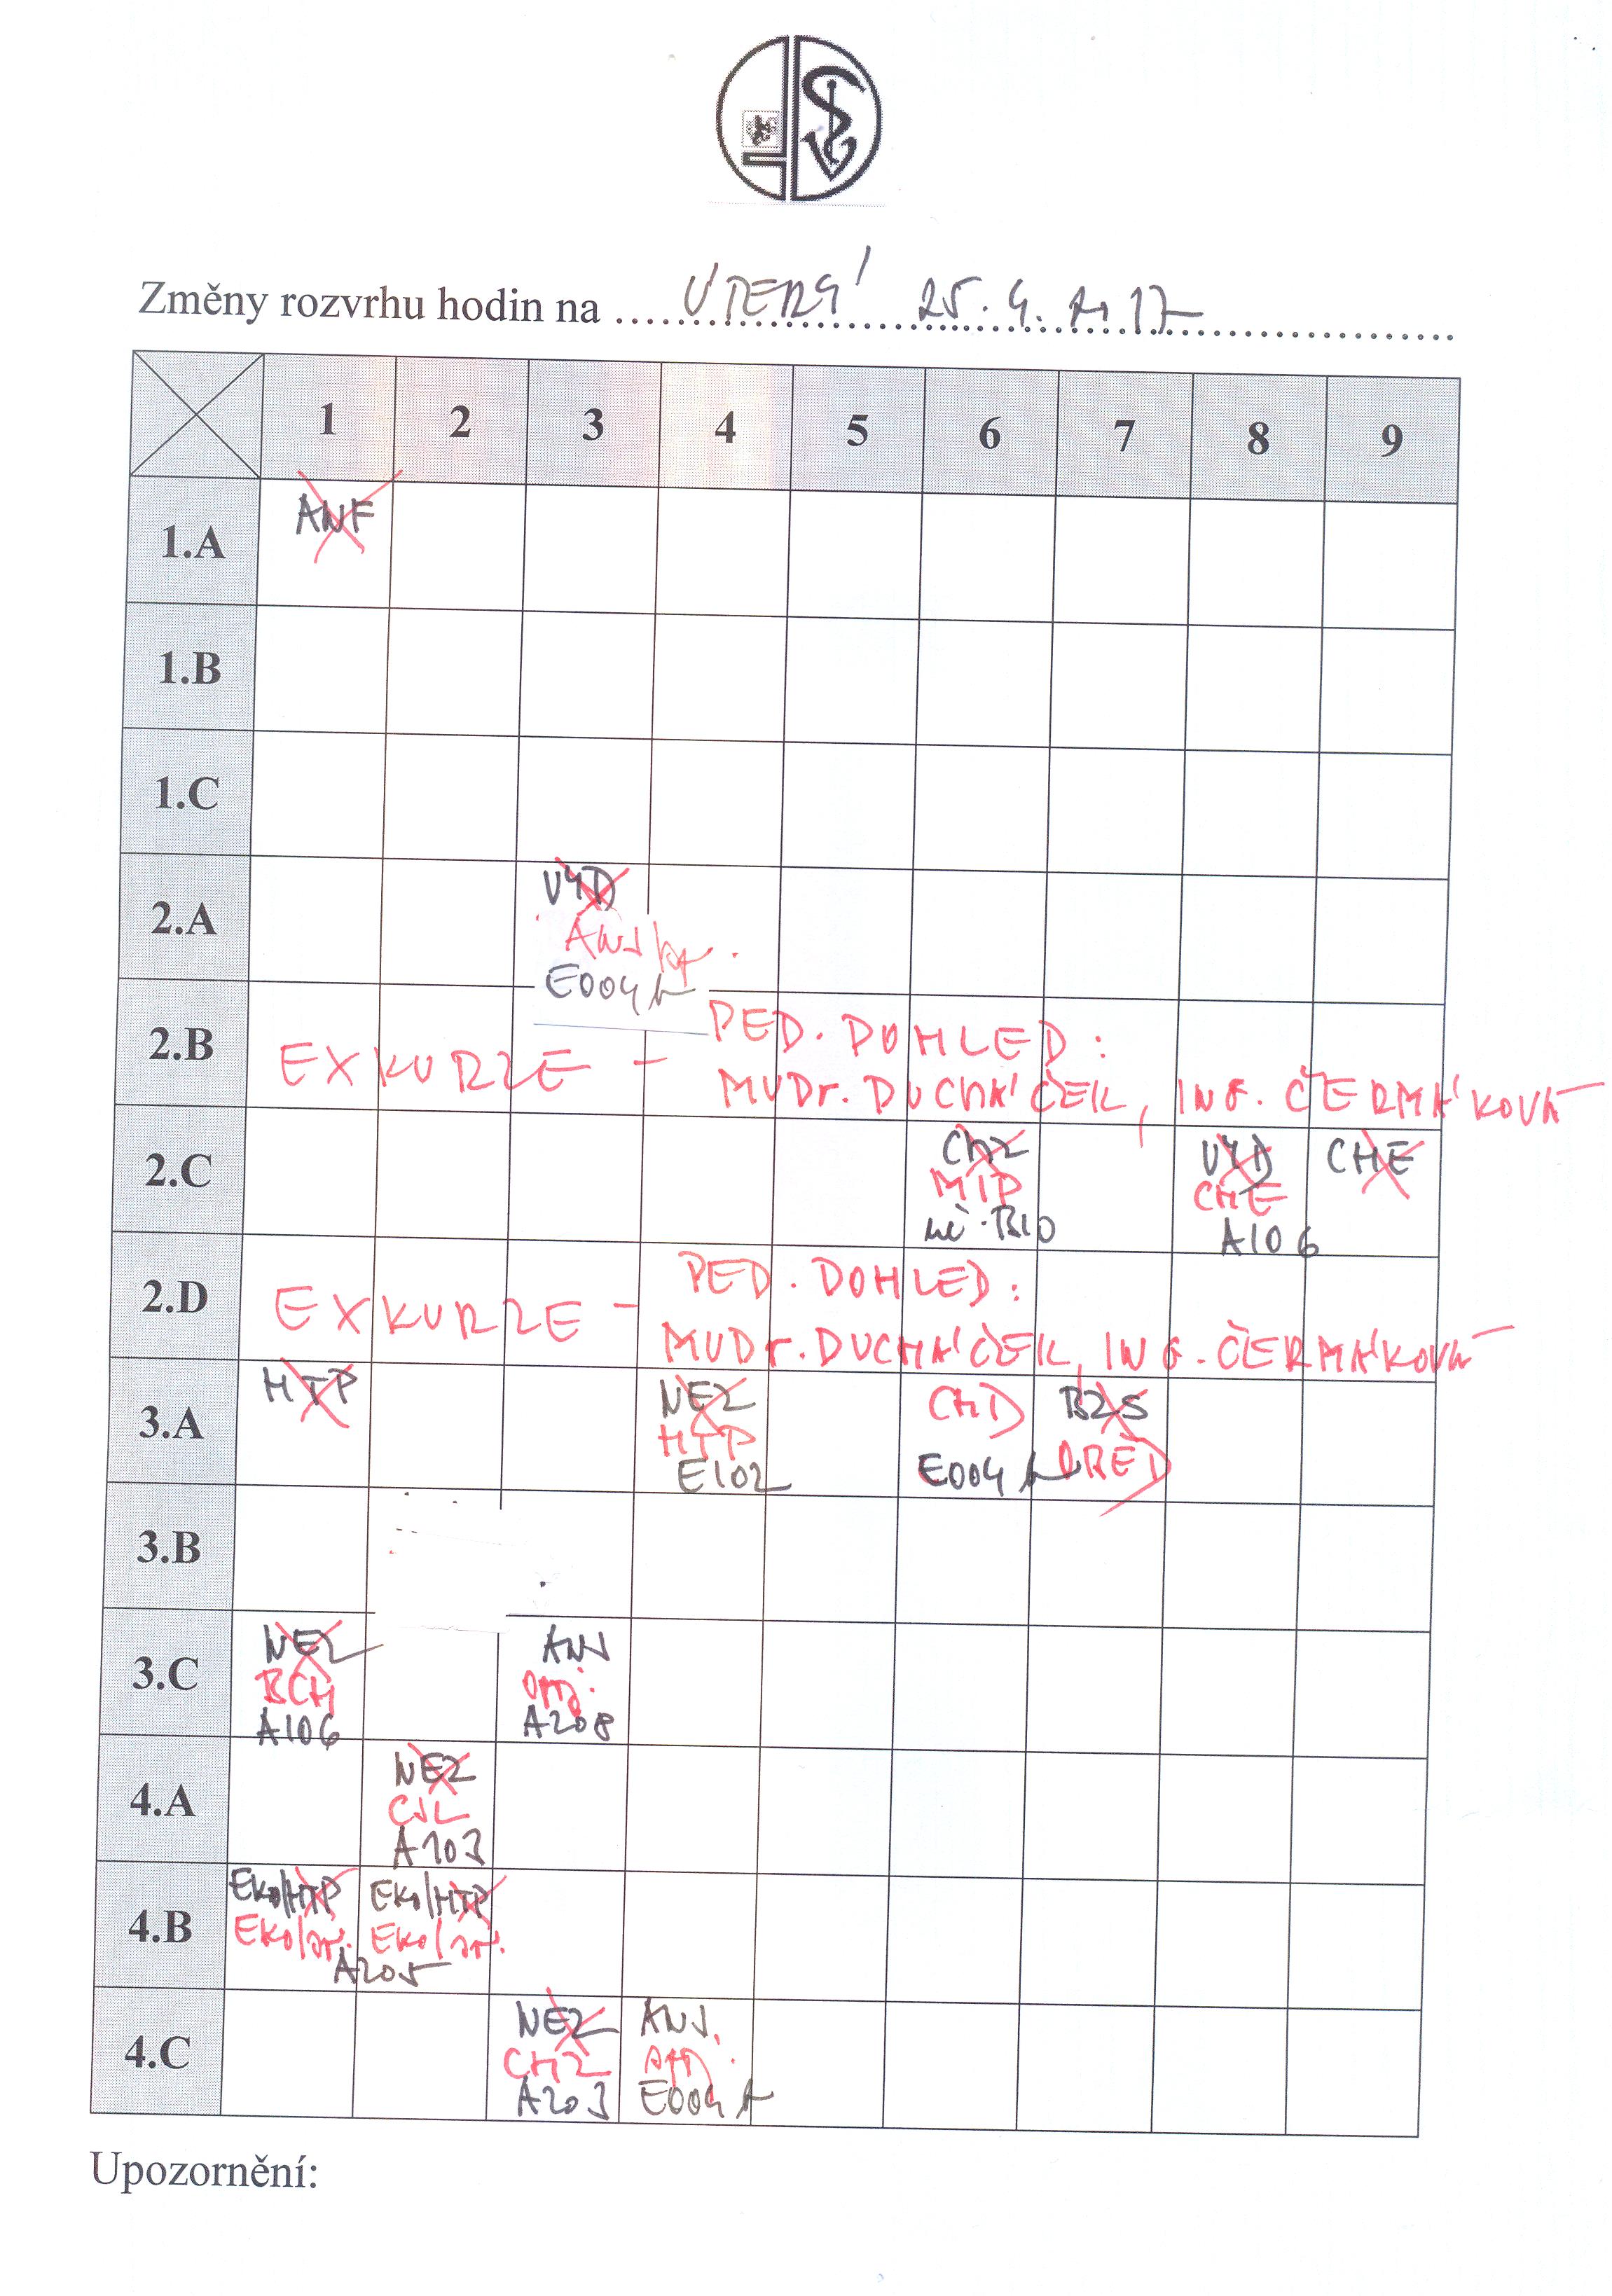 Změny rozvrhu hodin na ÚTERÝ 25. 4. 2017
1 2 3 4 5 6 7 8 9
1.A ANF
1.B
1.C
2.A VYD
ANJ
E004
2.B EXKURZE - PED. DOHLED:
MUDr. DUCHÁČEK, ING. ČERMÁKOVÁ
2.C CHZ VYD CHE
MIP CHE
BIO A106
2.D EXKURZE - PED. DOHLED:
MUDr. DUCHÁČEK, ING. ČERMÁKOVÁ
3.A HTP NEZ CHD BZS
HTP
E102 E004
3.B
3.C NEZ ANJ
BCH
A106 A208
4.A NEZ
CJL
A203
4.B Eko/HTP Eko/HTP
Eko Eko
A205
4.C NEZ ANJ
CHZ
A203 E004
Upozornění: